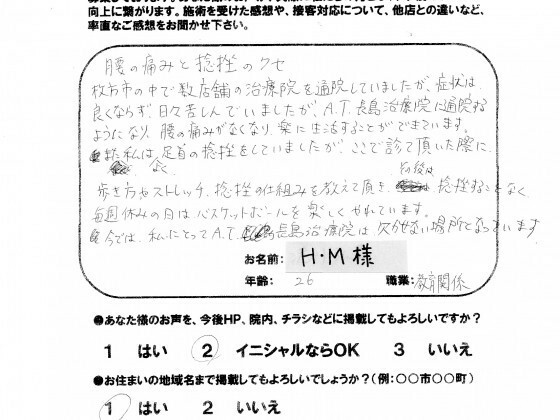 向上に繋がります。施術を受けた感想や、接客対応について、他店との違いなど、
率直なご感想をお聞かせ下さい。
腰の痛みと捻挫のクセ
枚方市の中で数店舗の治療院を通院していましたが、症状は
良くならず、日々苦しんでいましたが、A.T.長島治療院に通院する
ようになり、腰の痛みがなくなり、楽に生活することができています。
また私は、足首の捻挫をしていましたが、ここで診て頂いた際に、
歩き方やストレッチ、捻挫の仕組みを教えて頂き、その後は捻挫することなく
毎週休みの日はバスケットボールを楽しくやれています。
今では、私にとってA.T.長島治療院は欠かせない場所となっています。
お名前: H・M 様
年齢: 26 職業: 教育関係
●あなた様のお声を、今後HP、院内、チラシなどに掲載してもよろしいですか?
1 はい 2 イニシャルならOK 3 いいえ
●お住まいの地域名まで掲載してもよろしいでしょうか?(例:○○市○○町)
1 はい 2 いいえ